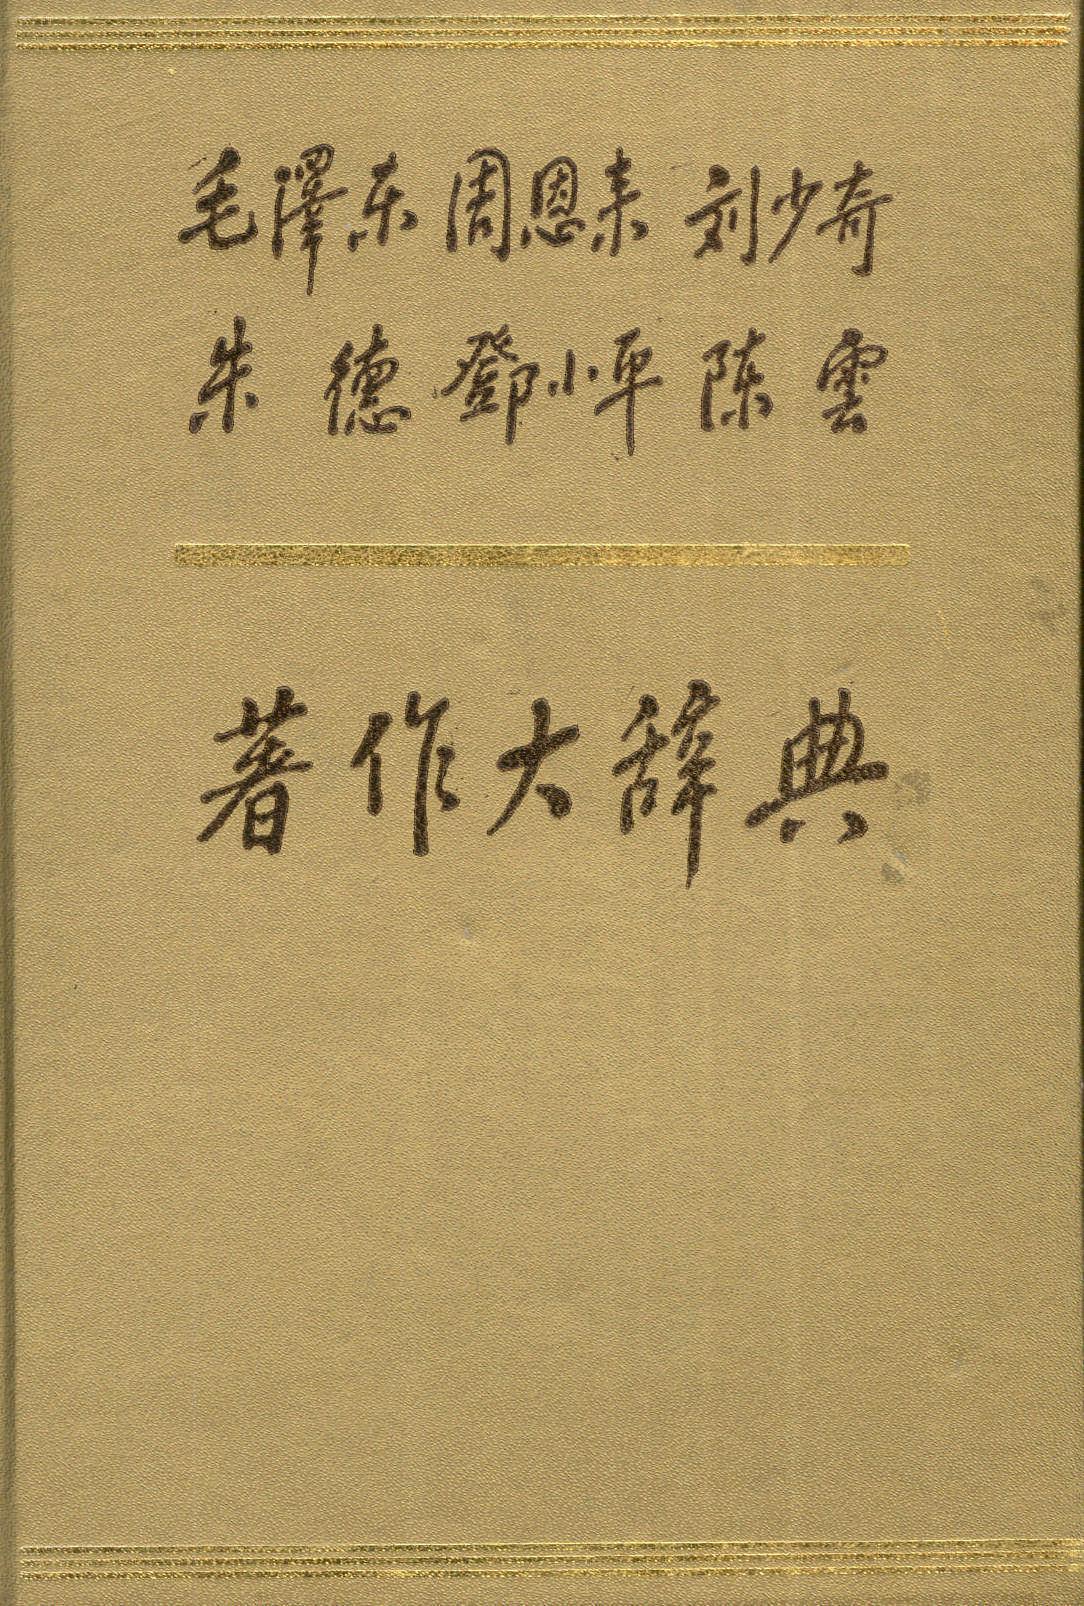 毛澤东 周恩来 刘少奇
朱德 鄧小平 陈雲
著作大辞典